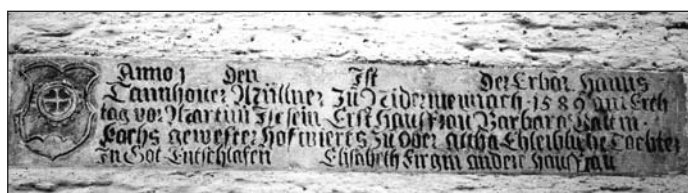 Anno 1 Den Ist Der Erbar Hanns
Tannhoner Müllner Zu Nidermenach · 1589 am Erch
tag vor Martini Ist sein Erst Hausfrau Barbara Valtin
Kochs gewester Hofwierts zu Ober Ehleibliche Tochter
In Got Entschlafen Elisabeth Firgin andere Hausfrau